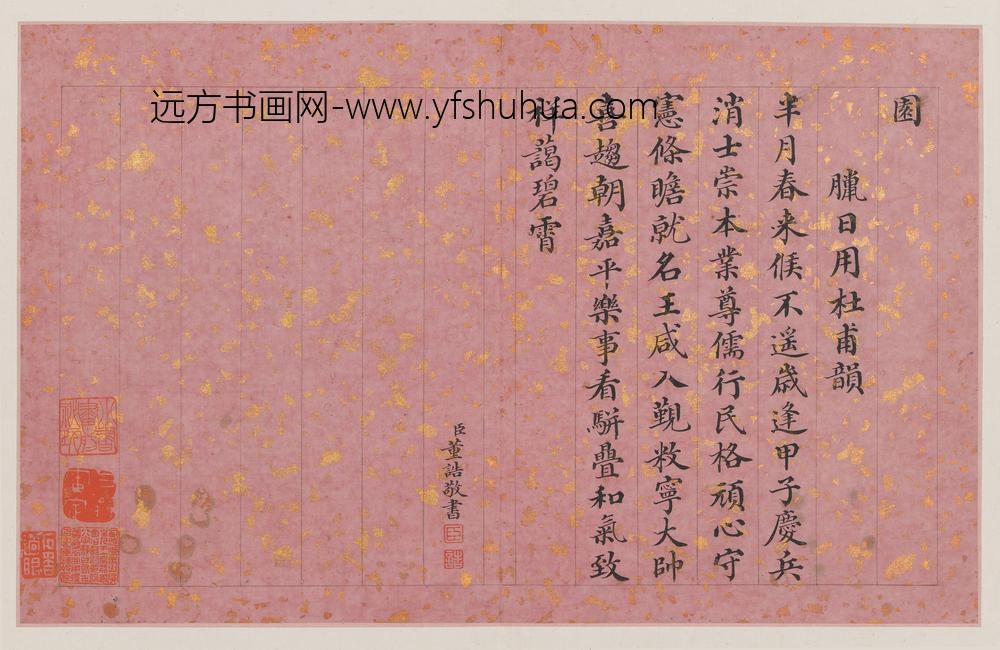 園
臘日用杜甫韻
半月春来候不遥歳逢甲子慶兵
消士崇本業尊儒行民格頑心守
憲條瞻就名王咸入覲敉寧大帥
喜趨朝嘉平樂事看駢疊和氣致
祥藹碧霄
臣董誥敬書
臣
誥
远方书画网-www.yfshuhua.com